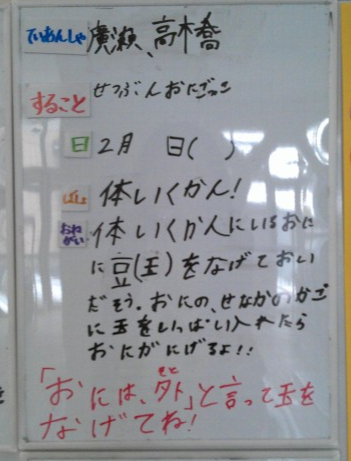 ていあんしゃ 廣瀬、高木橋
すること せつぶんおにごっこ
日 2月 日( )
ばしょ 体いくかん!
おねがい 体いくかんにいるおに
に豆(玉)をなげておい
だそう。おにの、せなかのかご
に玉をいっぱい入れたら
おにがにげるよ!!
「おには、外」と言って玉を
そと
なげてね!